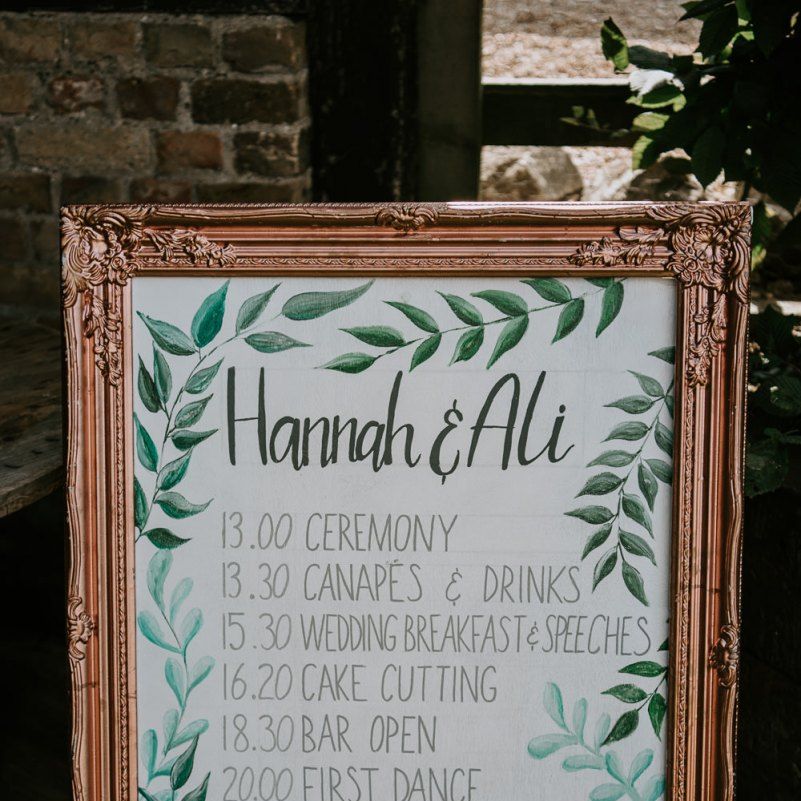 Hannah & Ali
13.00 CEREMONY
13.30 CANAPÉS & DRINKS
15.30 WEDDING BREAKFAST & SPEECHES
16.20 CAKE CUTTING
18.30 BAR OPEN
20.00 FIRST DANCE